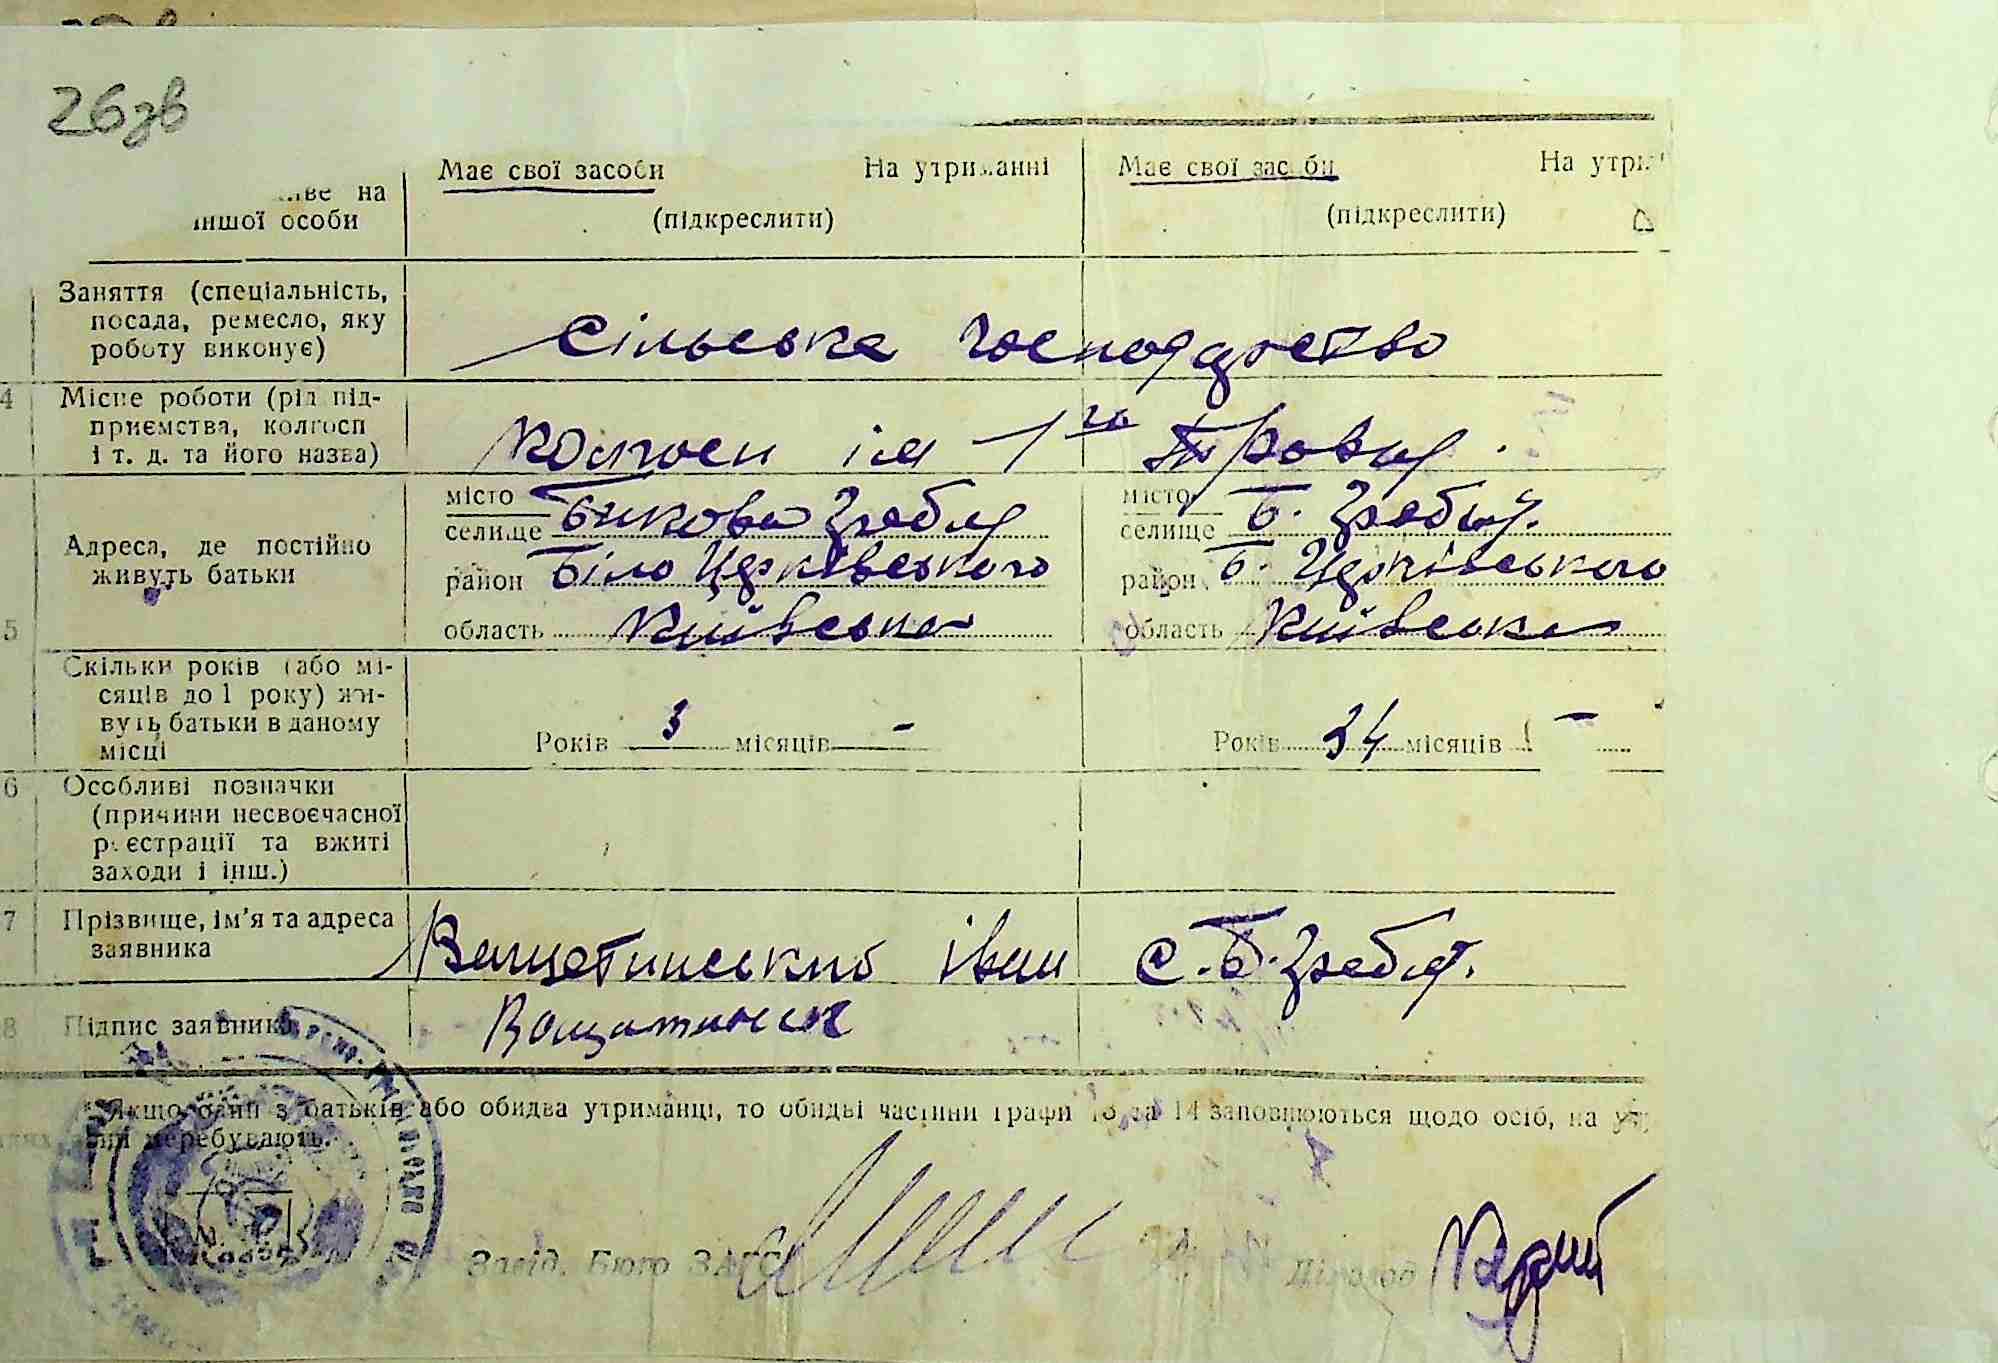 26зв
Має свої засоби На утриманні Має свої засоби На утри
(підкреслити) (підкреслити)
на
іншої особи
Заняття (спеціальність,
посада, ремесло, яку
роботу виконує)
сільське господарство
4 Місце роботи (рід під-
приємства, колгосп
і т. д. та його назва)
колгосп ім 1го Травня.
5 Адреса, де постійно
живуть батьки
місто
селище Бикова Гребля
район Біло Церківського
область Київська
місто
селище Б. Гребля.
район Б. Церківського
область Київська
Скільки років (або мі-
сяців до 1 року) жи-
вуть батьки в даному
місці
Років 3 місяців –
Років 34 місяців –
6 Особливі позначки
(причини несвоєчасної
реєстрації та вжиті
заходи і інш.)
7 Прізвище, ім'я та адреса
заявника
Ващетинський Іван с. Б. Гребля.
8 Підпис заявника
*Якщо один з батьків або обидва утриманці, то обидві частини графи 13 та 14 заповнюються щодо осіб, на
перебувають.
Завід. Бюро ЗАГС Діловод